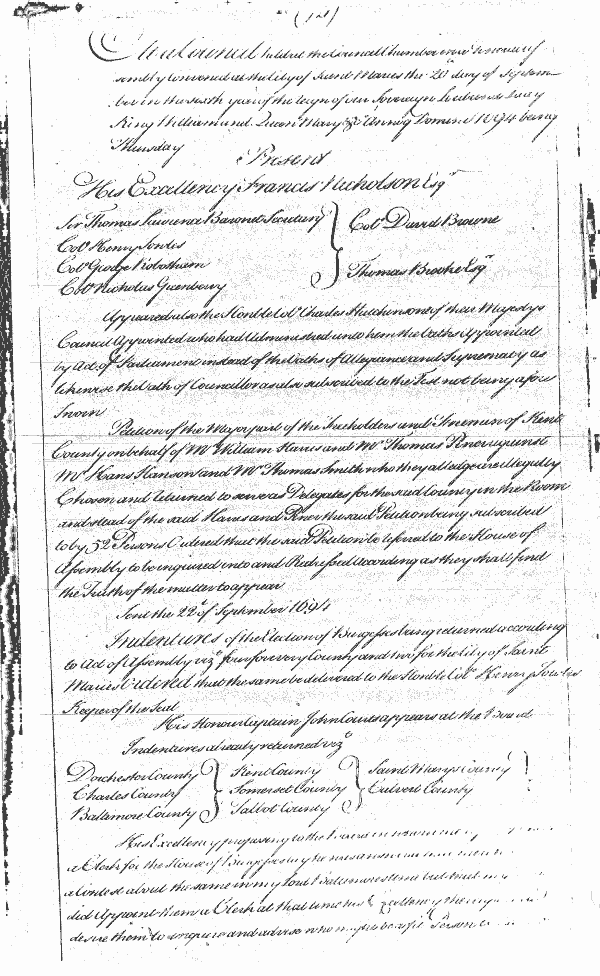 At a Council held at the Councill Chamber in an Assembly
sembly Convened at the City of Saint Maries the 20th day of Septem
ber in the sixth year of the Reign of our Sovereign Lord and Lady
King William and Queen Mary &c Annoq Domini 1694 being
Thursday
Present
His Excellency Francis Nicholson Esqr
Sir Thomas Laurence Baronet Secretary
Colo Henry Jowles
Colo George Robotham
Colo Nicholas Greenberry
Colo David Browne
Thomas Brooke Esqr
Appeared also the Honble Colo Charles Hutchins one of their Majestys
Council Appointed who had Administred unto him the Oaths Appointed
by Act of Parliament instead of the Oaths of Allegiance and Supremacy as
likewise the Oath of Councillor as also subscribed to the Test not being afore
Sworn
Petition of the Major part of the freeholders and freemen of Kent
County on behalf of Mr William Harris and Mr Thomas against
Mr Hans Hanson and Mr Thomas Smith who they alledge are illegally
Chosen and returned to serve as Delegates for the said County in the Room
and stead of the said Harris and the said Petition being subscribed
to by 52 Persons Ordered that the said Petition be referred to the House of
Assembly to be inquired into and Redressed According as they shall find
the Truth of the matter to appear
Send the 22d of September 1694
Indentures of the Election of Burgesses being returned according
to Act of Assembly vizt four for every County and two for the City of Saint
Maries Ordered that the same be delivered to the Honble Colo Henry Jowles
Keeper of the Seal
His Honour Captain John Courts appears at the Board
Indentures already returned vizt
Dorchester County
Charles County
Baltimore County
Kent County
Somerset County
Talbot County
Saint Marys County
Calvert County
His Excellency proposing to the Board
a Clerk for the House of Burgesses
a Contest about the same in my Lord Baltimores time but that
did Appoint them a Clerk at that time his Excellency
desire them to enquire and advise who may be a fit Person